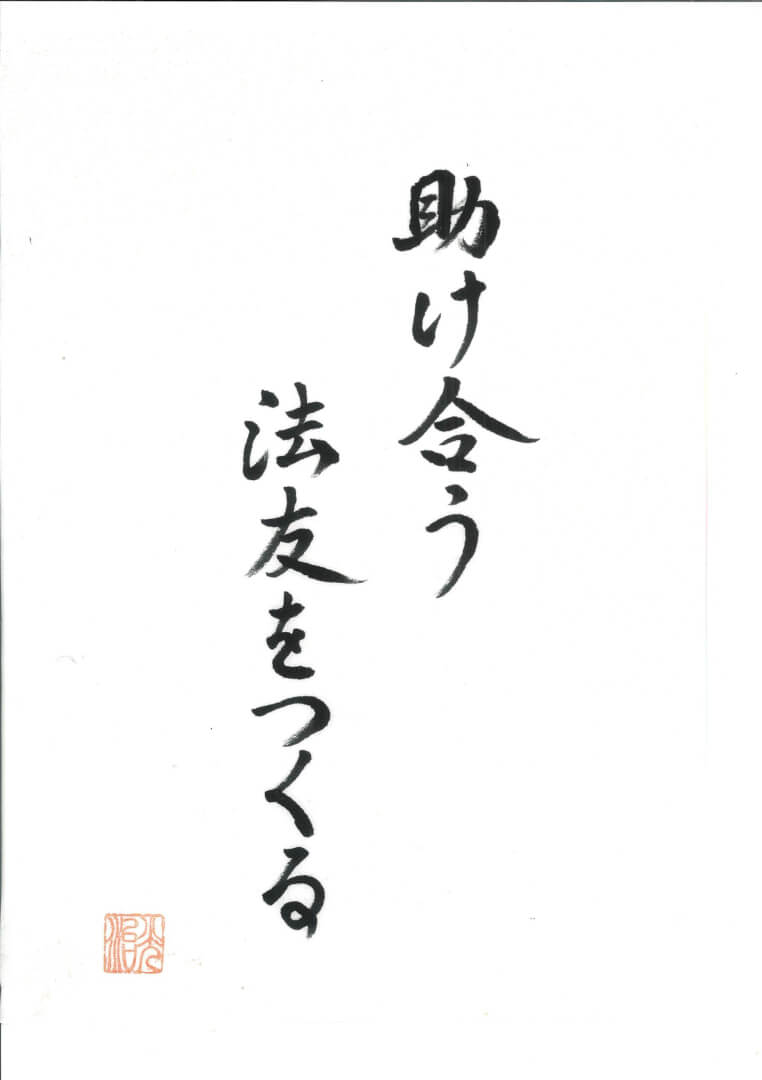 助け合う
法友をつくる